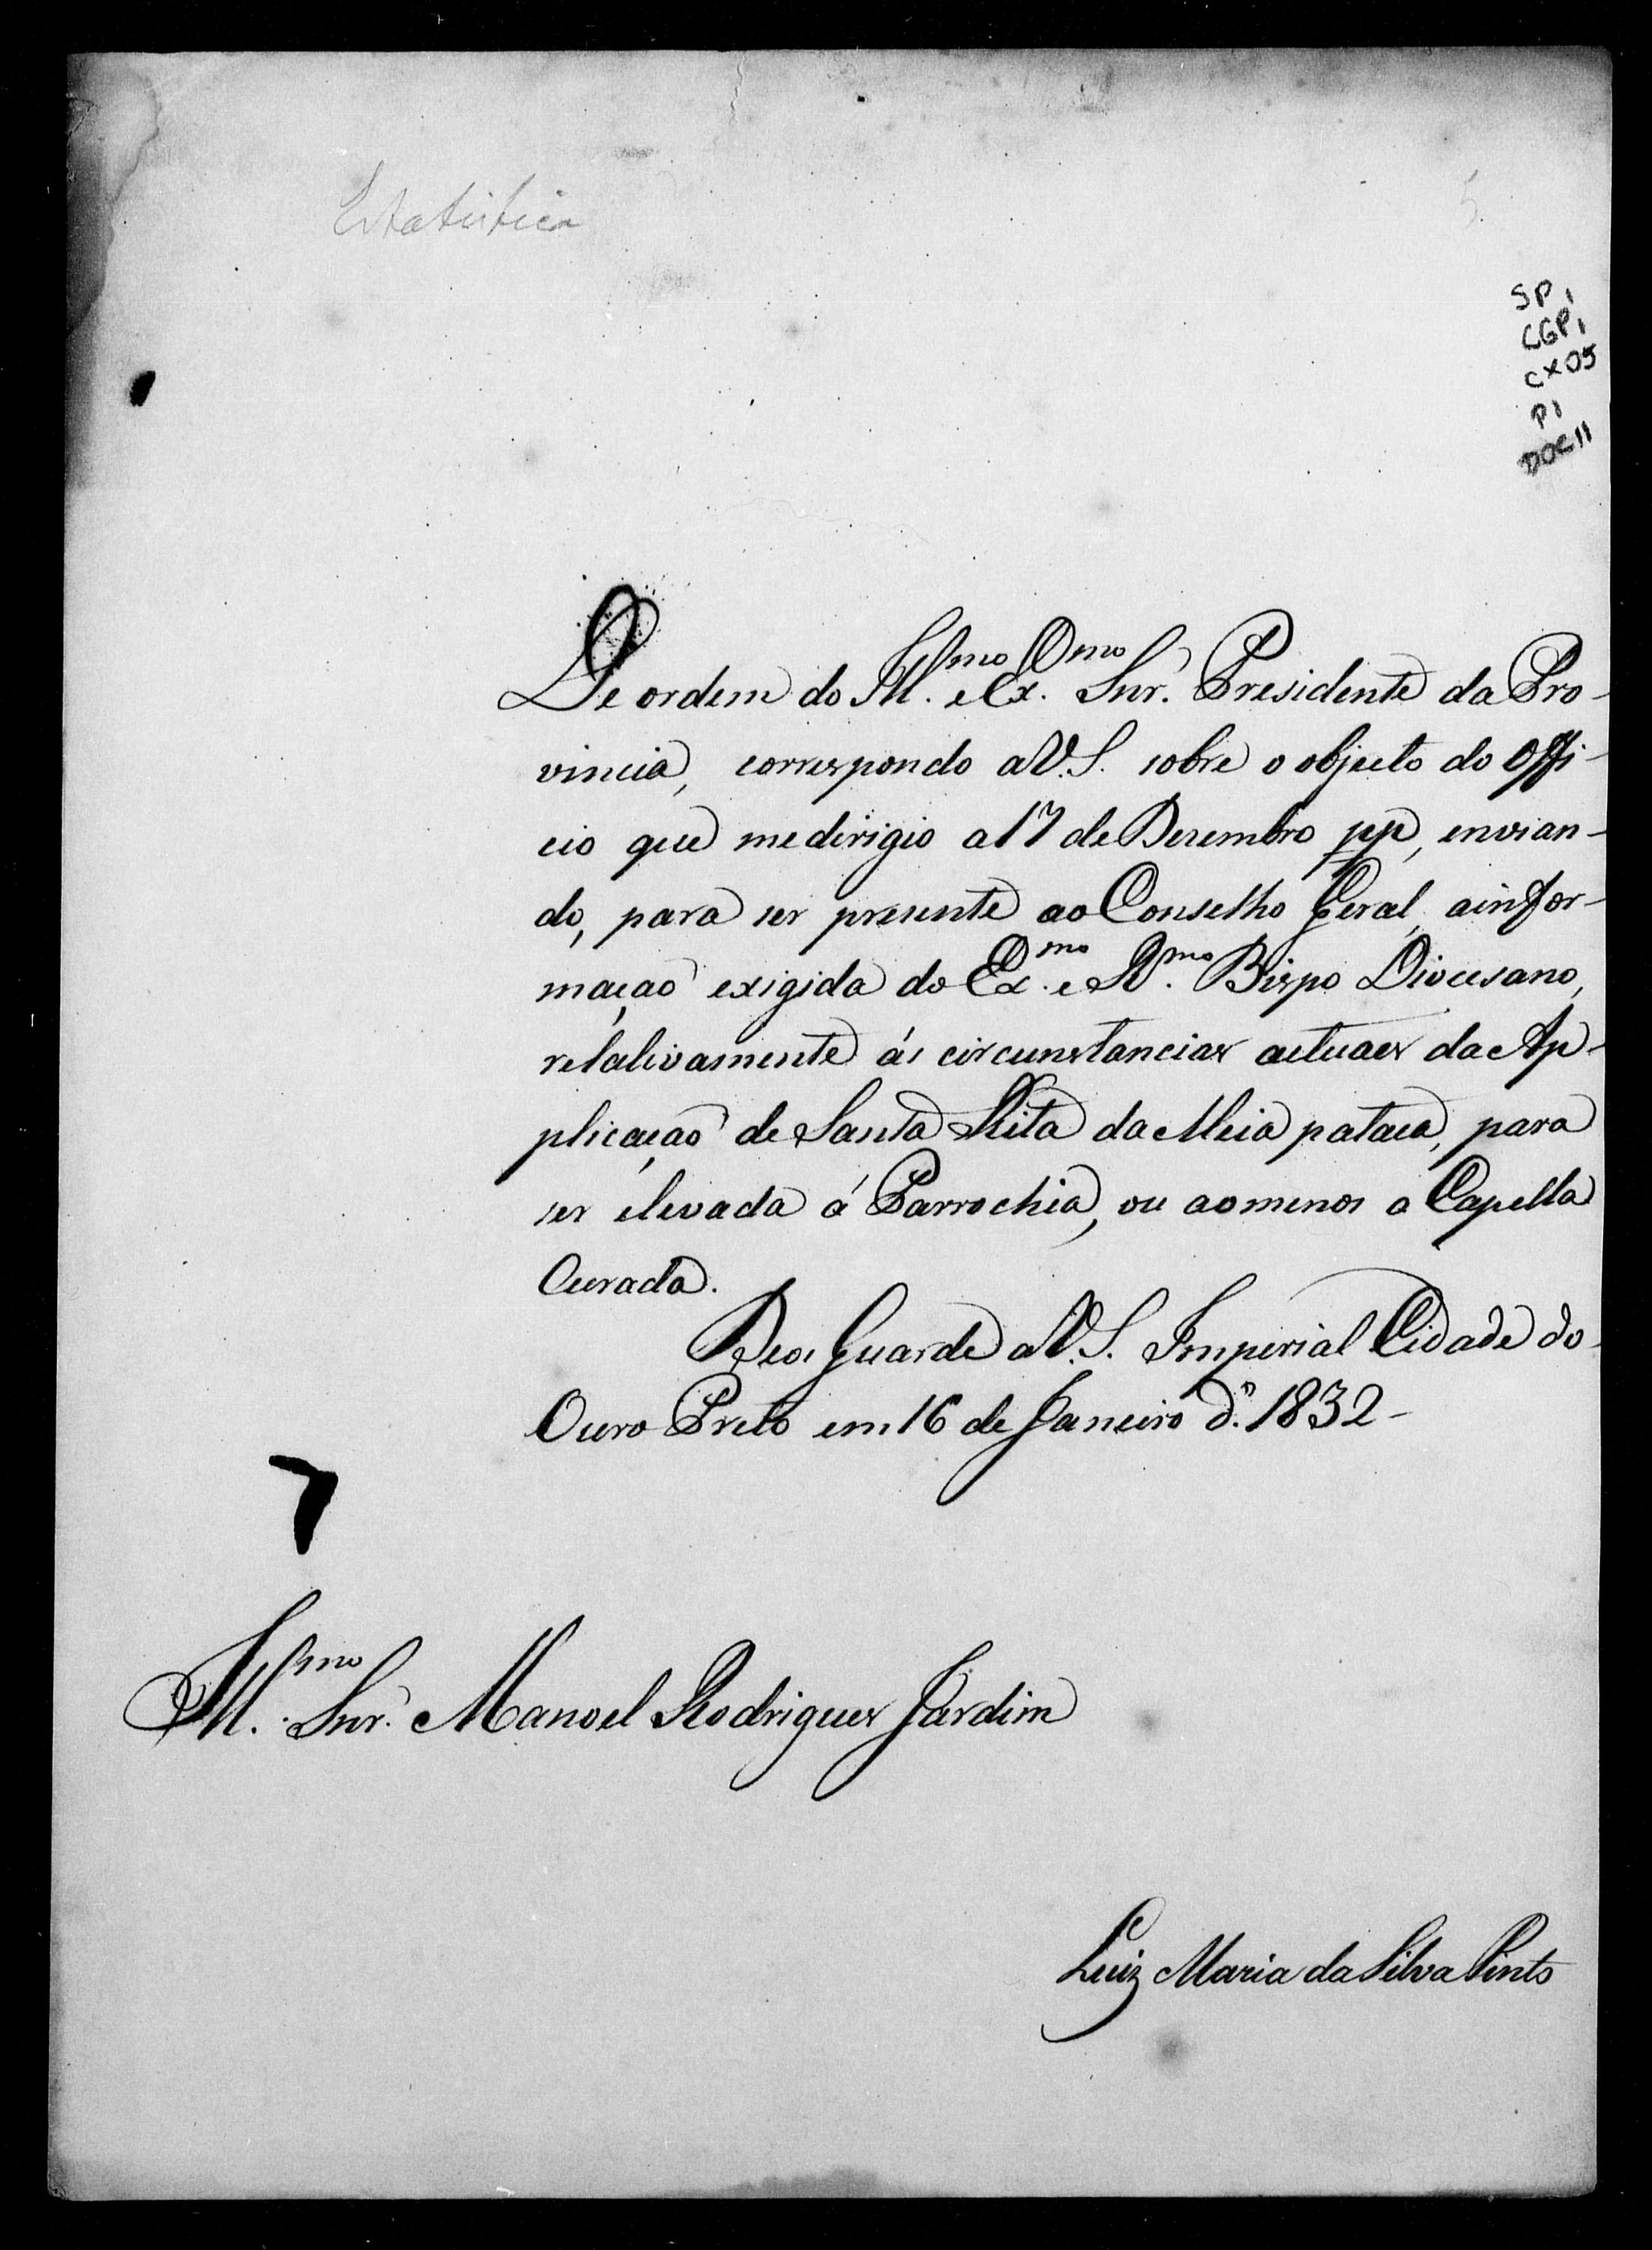 Estatistica
5.
SP,
CGP,
CX05
P1
DOC11
De ordem do Ill.mo e Ex.mo Snr. Presidente da Pro-
vincia, correspondo a V.S. sobre o objecto do Offi-
cio que me dirigio a 17 de Dezembro pp, envian-
do, para ser presente ao Conselho Geral, a infor-
mação exigida do Ex.mo e R.mo Bispo Diocesano,
relativamente ás circunstancias actuaes da Ap-
plicação de Santa Rita da Meia pataca, para
ser elevada á Parrochia, ou ao menos a Capella
Curada.
Deos Guarde a V.S. Imperial Cidade do
Ouro Preto em 16 de Janeiro d. 1832-
Ill.mo Snr. Manoel Rodrigues Jardim
Luiz Maria da Silva Pinto